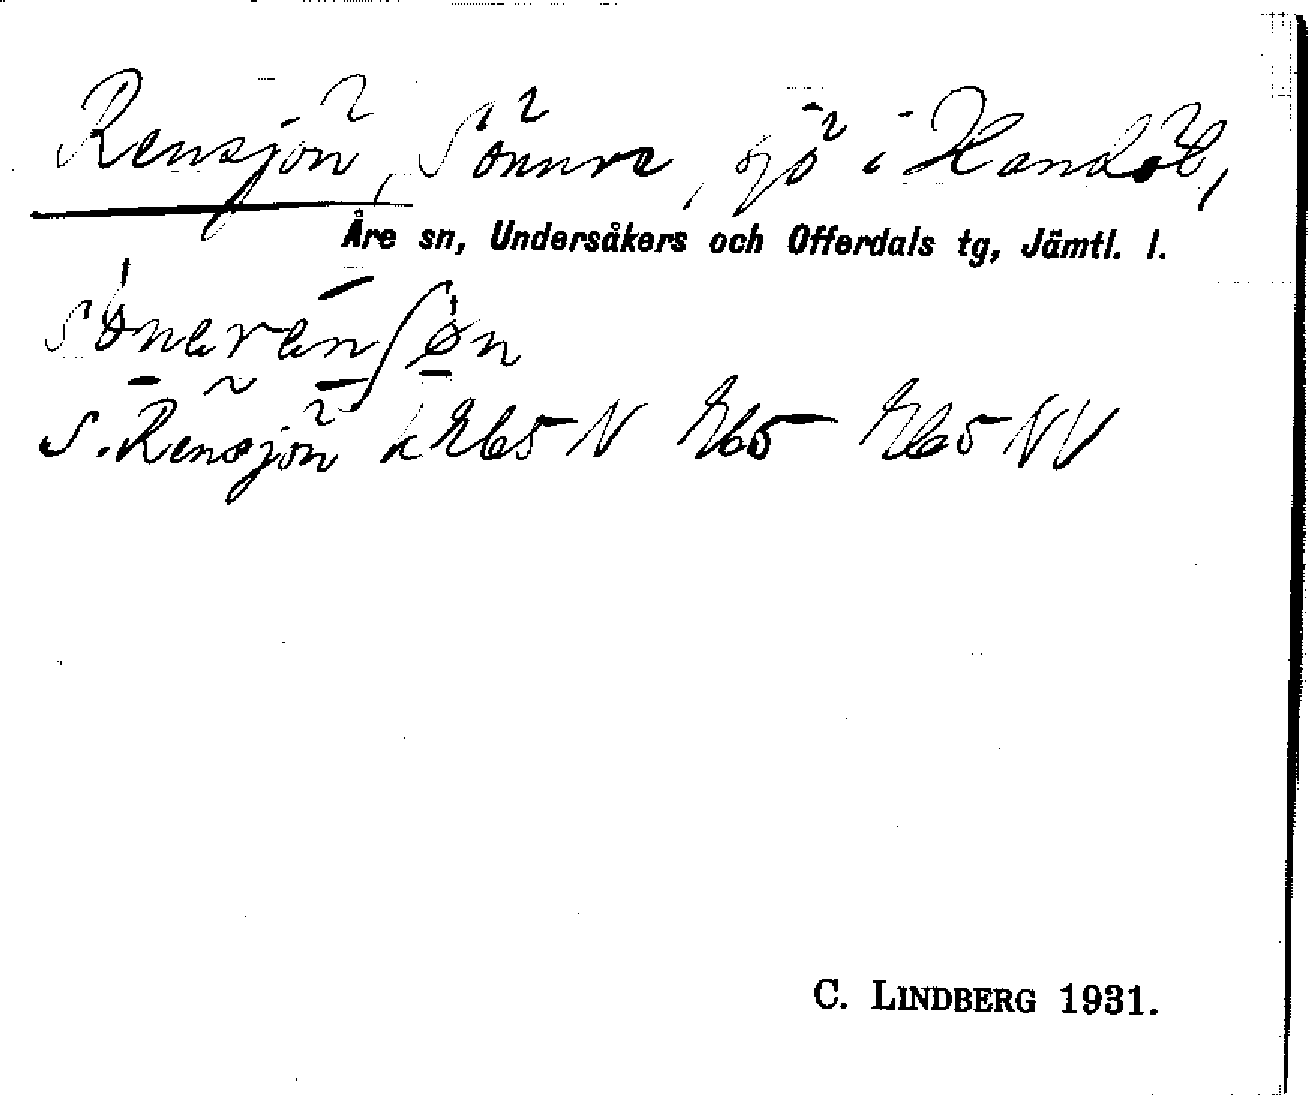 Rensjön, Sönnre, sjö i Handöl,
Åre sn, Undersåkers och Offerdals tg, Jämtl. l.
sønerenʃøn
S. Rensjön k Æ65 N Æ65 Æ65 NV
C. LINDBERG 1931.